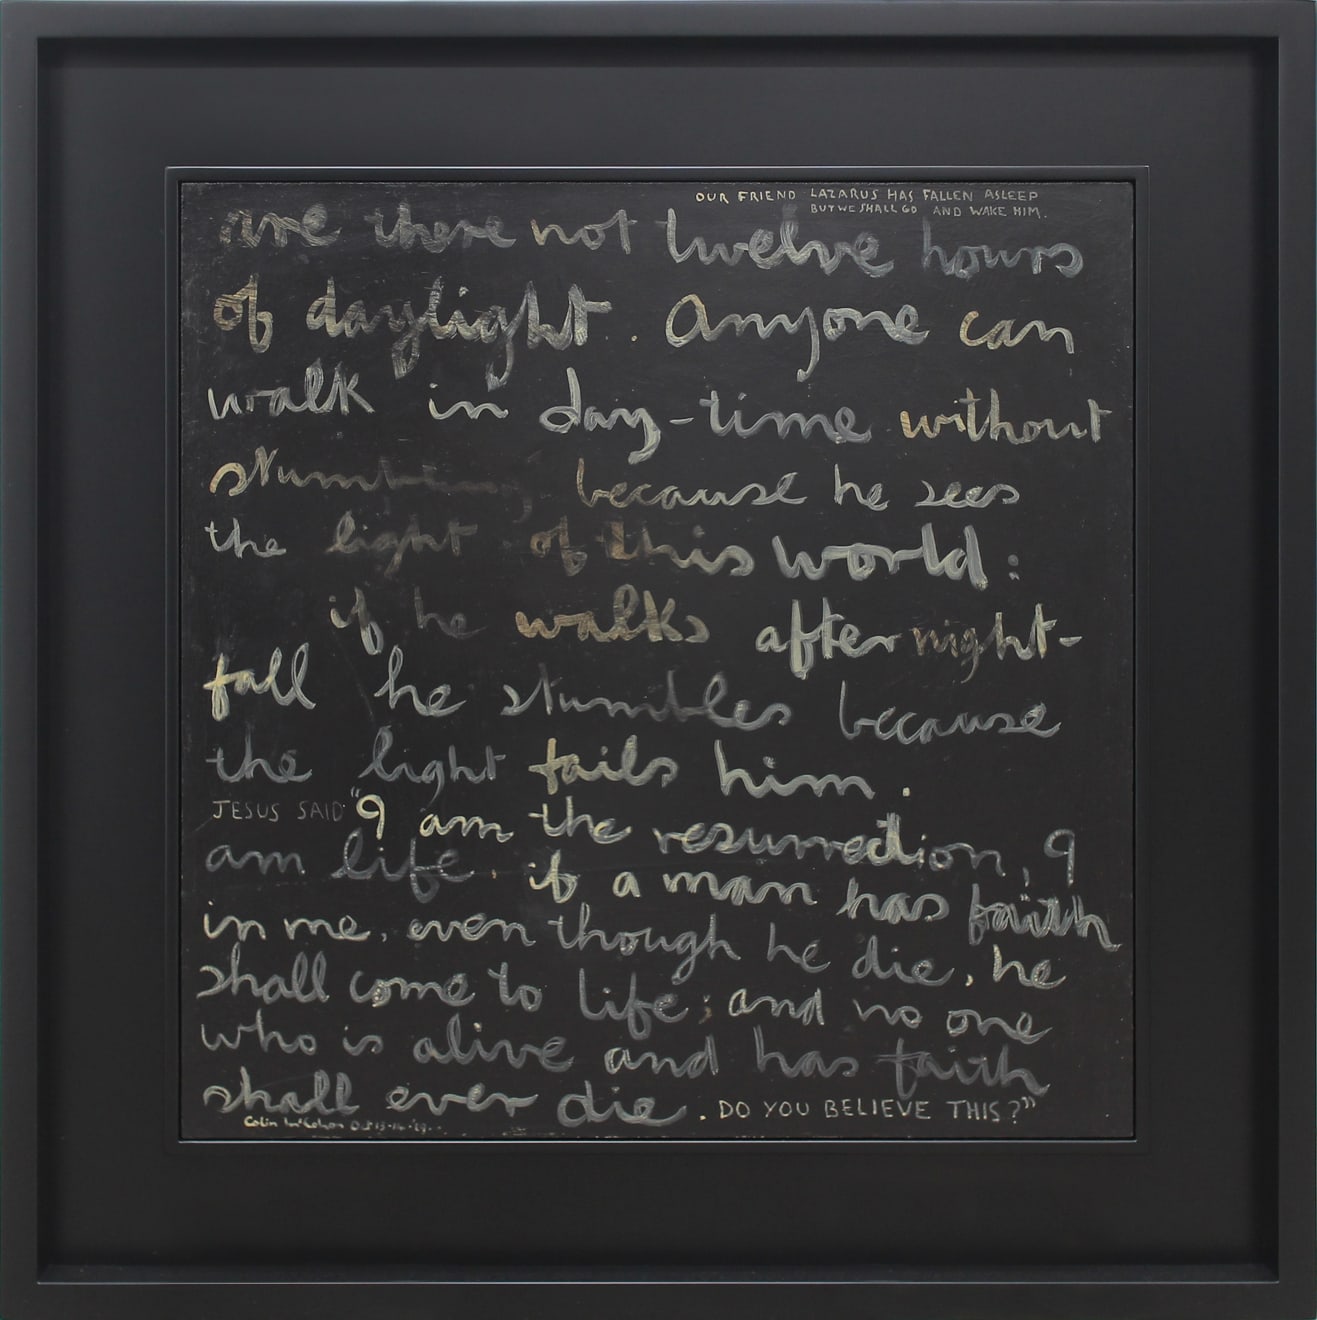 OUR FRIEND LAZARUS HAS FALLEN ASLEEP
BUT WE SHALL GO AND WAKE HIM.
are there not twelve hours
of daylight. Anyone can
walk in day-time without
stumbling because he sees
the light of this world:
if he walks after night-
fall he stumbles because
the light fails him.
JESUS SAID "I am the resurrection, I
am life. if a man has faith
in me, even though he die, he
shall come to life; and no one
who is alive and has faith
shall ever die. DO YOU BELIEVE THIS?"
Colin McCahon